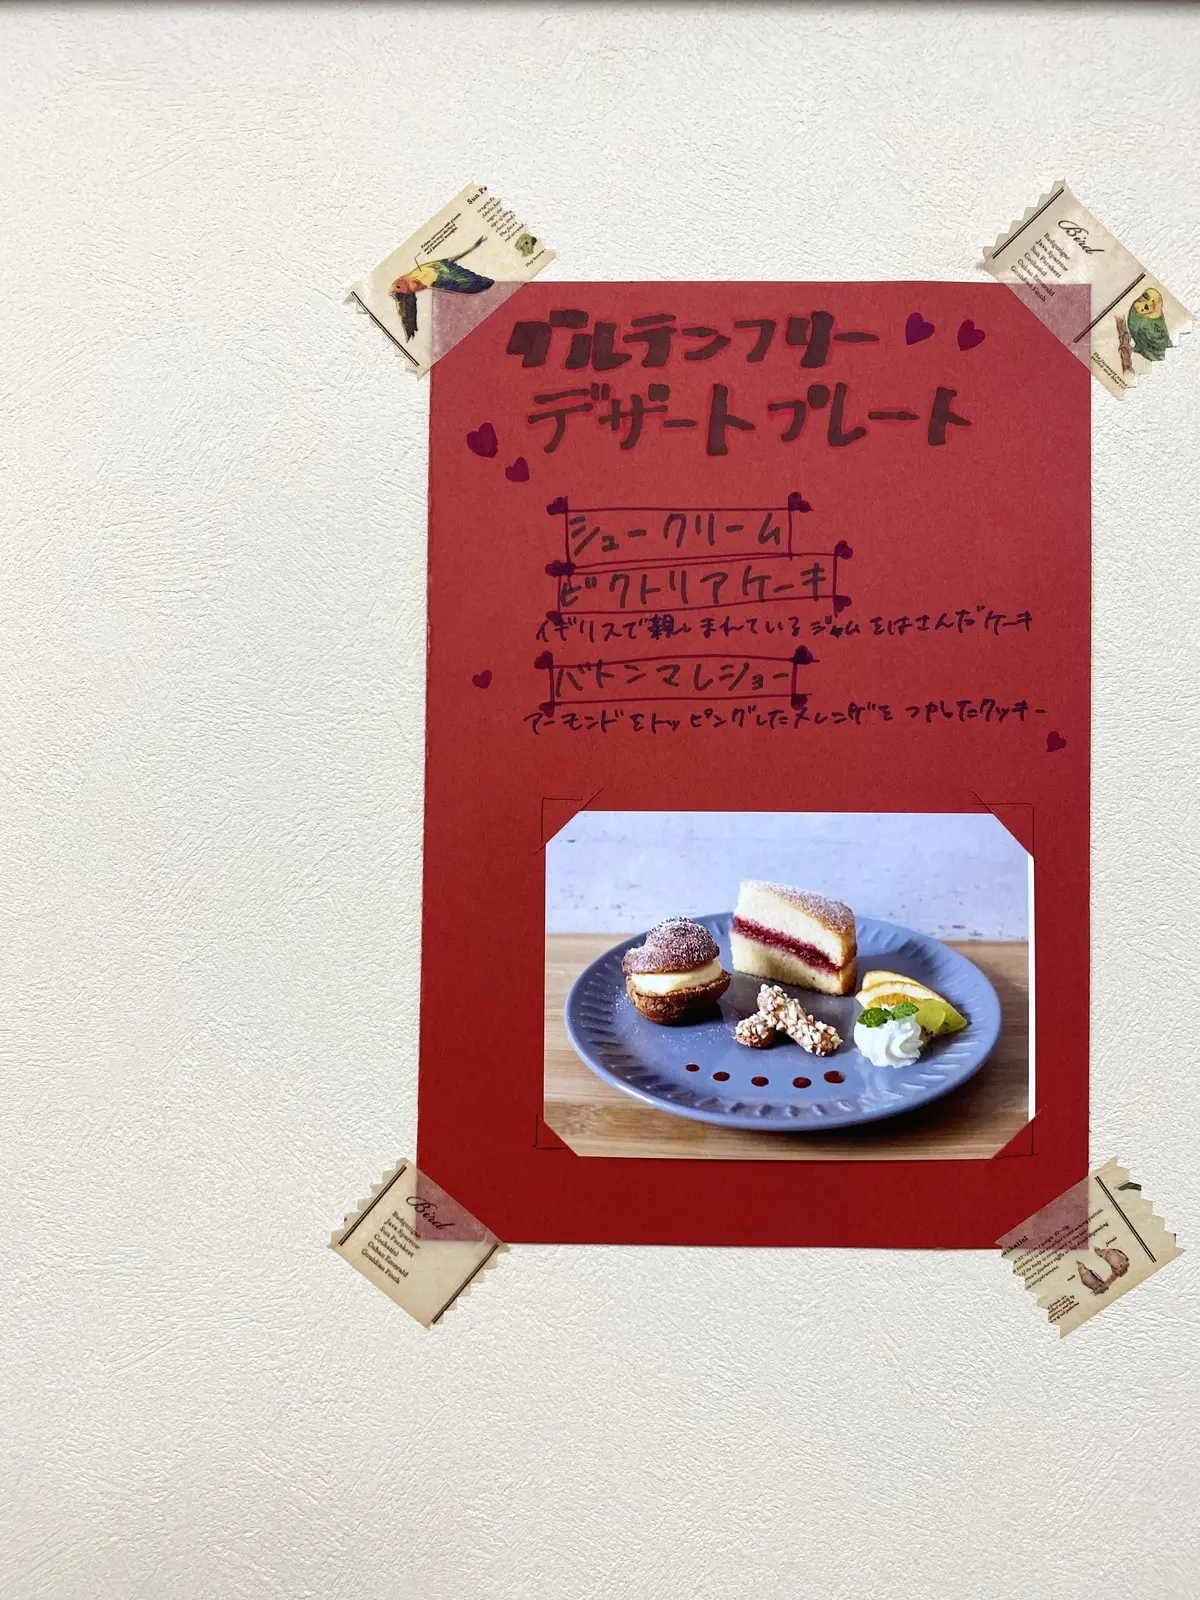 グルテンフリー
デザートプレート
シュークリーム
ビクトリアケーキ
イギリスで親しまれているジャムをはさんだケーキ
バトンマレショー
アーモンドをトッピングしたメレンゲをつやしたクッキー
Sun Pa
Bird
Budgerigar
Java Sparrow
Sun Parakeet
Cockatiel
Cuban Emerald
Gouldian Finch
Bird
Budgerigar
Java Sparrow
Sun Parakeet
Cockatiel
Cuban Emerald
Gouldian Finch
ockatiel